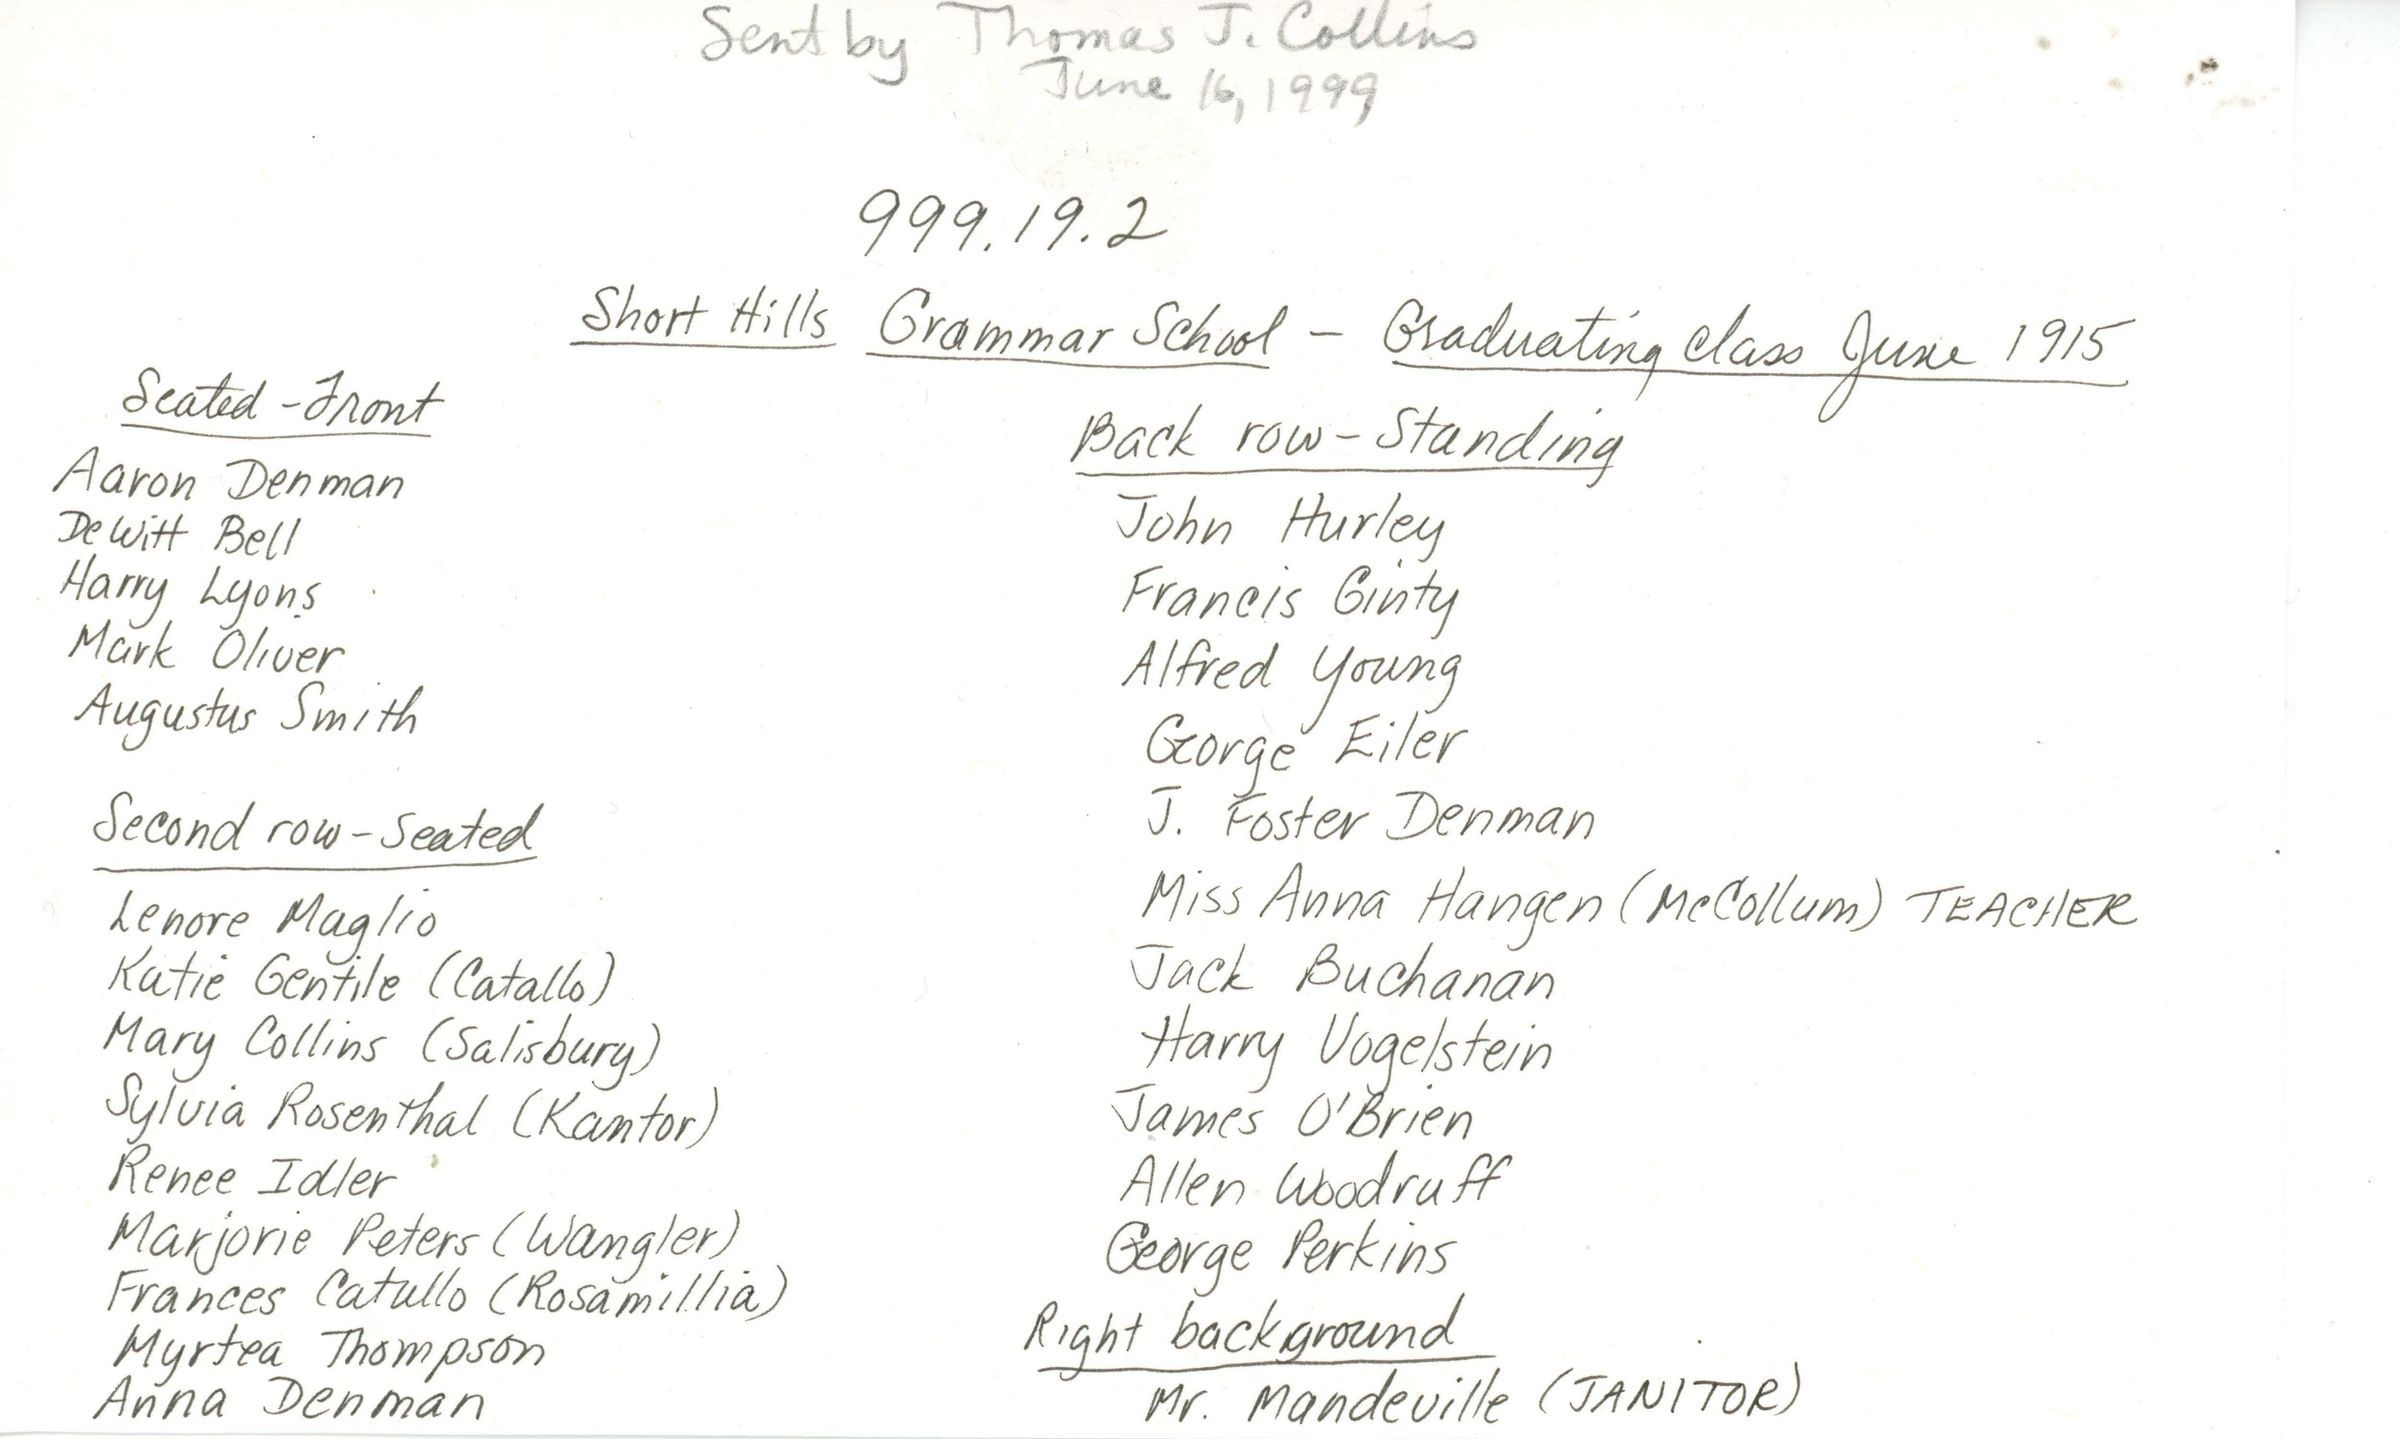 Sent by Thomas J. Collins
June 16, 1999
999.19.2
Short Hills Grammar School - Graduating class June 1915
Seated - Front
Aaron Denman
DeWitt Bell
Harry Lyons
Mark Oliver
Augustus Smith
Second row - Seated
Lenore Maglio
Katie Gentile (Catallo)
Mary Collins (Salisbury)
Sylvia Rosenthal (Kantor)
Renee Idler
Marjorie Peters (Wangler)
Frances Catullo (Rosamillia)
Myrtea Thompson
Anna Denman
Back row - Standing
John Hurley
Francis Ginty
Alfred Young
George Eiler
J. Foster Denman
Miss Anna Hangen (McCollum) TEACHER
Jack Buchanan
Harry Vogelstein
James O'Brien
Allen Woodruff
George Perkins
Right background
Mr. Mandeville (JANITOR)